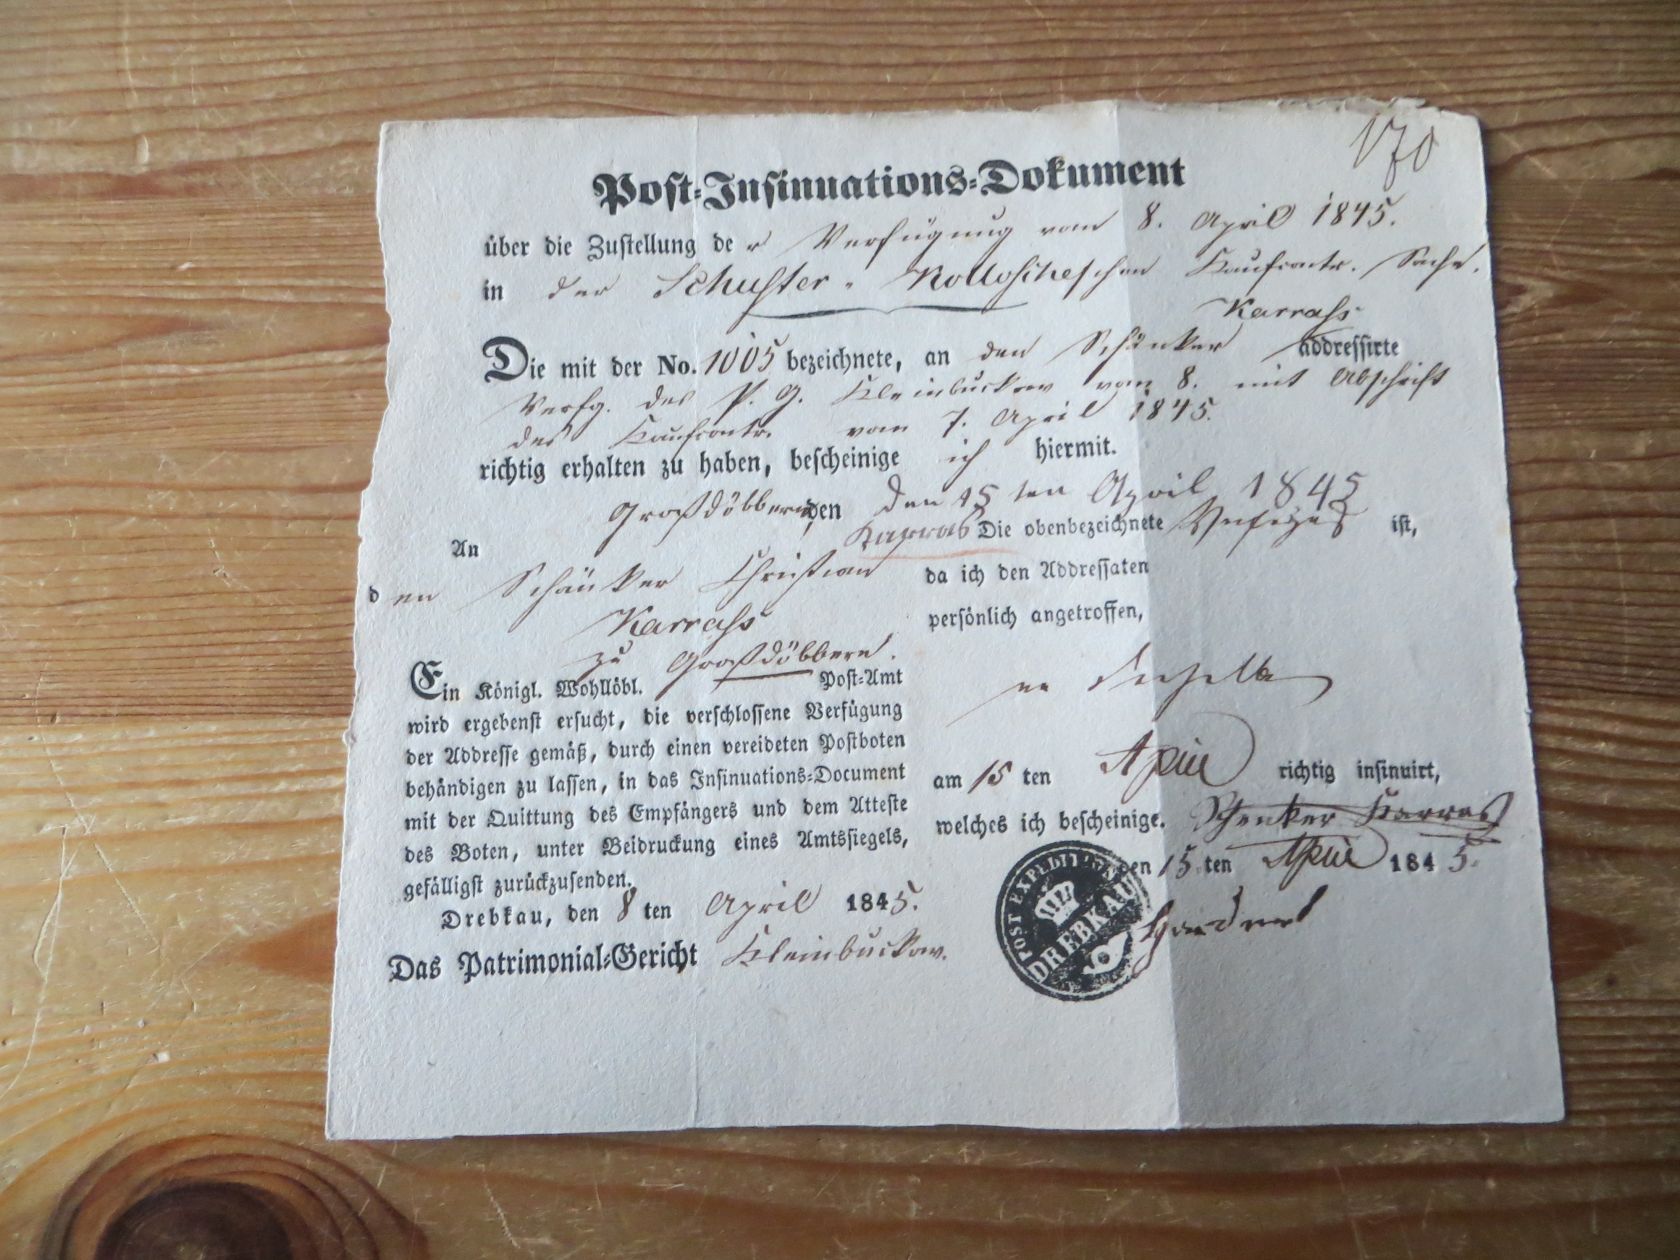 170
Post-Insinuations-Dokument
über die Zustellung de r Verfügung vom 8. April 1845.
in der Schuster-Kolloscheschen Kaufcontr. Sache.
Karrass
Die mit der No. 1005 bezeichnete, an den Schänker addressirte
Verfg. des P. G. Kleinbuckow vom 8. mit Abschrift
des Kaufcontr. vom 7. April 1845.
richtig erhalten zu haben, bescheinige ich hiermit.
Großdöbbern, den den 15 ten April 1845
Karras
An
den Schänker Christian
Karrass
zu Großdöbbern.
Ein Königl. Wohllöbl. Post-Amt
wird ergebenst ersucht, die verschlossene Verfügung
der Addresse gemäß, durch einen vereideten Postboten
behändigen zu lassen, in das Insinuations-Document
mit der Quittung des Empfängers und dem Atteste
des Boten, unter Beidruckung eines Amtssiegels,
gefälligst zurückzusenden.
Drebkau, den 8 ten April 1845.
Das Patrimonial-Gericht Kleinbuckow.
Die obenbezeichnete ist,
da ich den Addressaten
persönlich angetroffen,
am 15 ten April richtig insinuirt,
welches ich bescheinige. Schenker Karras
den 15 ten April 1845.
POST EXPEDITION
DREBKAU